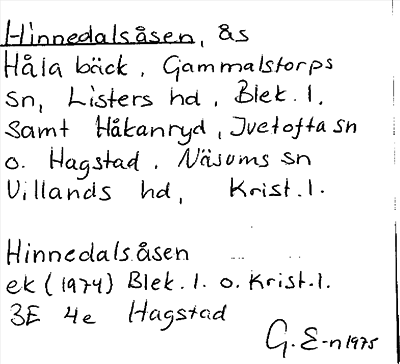 Hinnedalsåsen, ås
Håla bäck, Gammalstorps
sn, Listers hd, Blek. l.
samt Håkanryd, Ivetofta sn
o. Hagstad, Näsums sn
Villands hd, Krist. l.
Hinnedalsåsen
ek (1974) Blek. l. o. Krist. l.
3E 4e Hagstad
G. E-n 1975